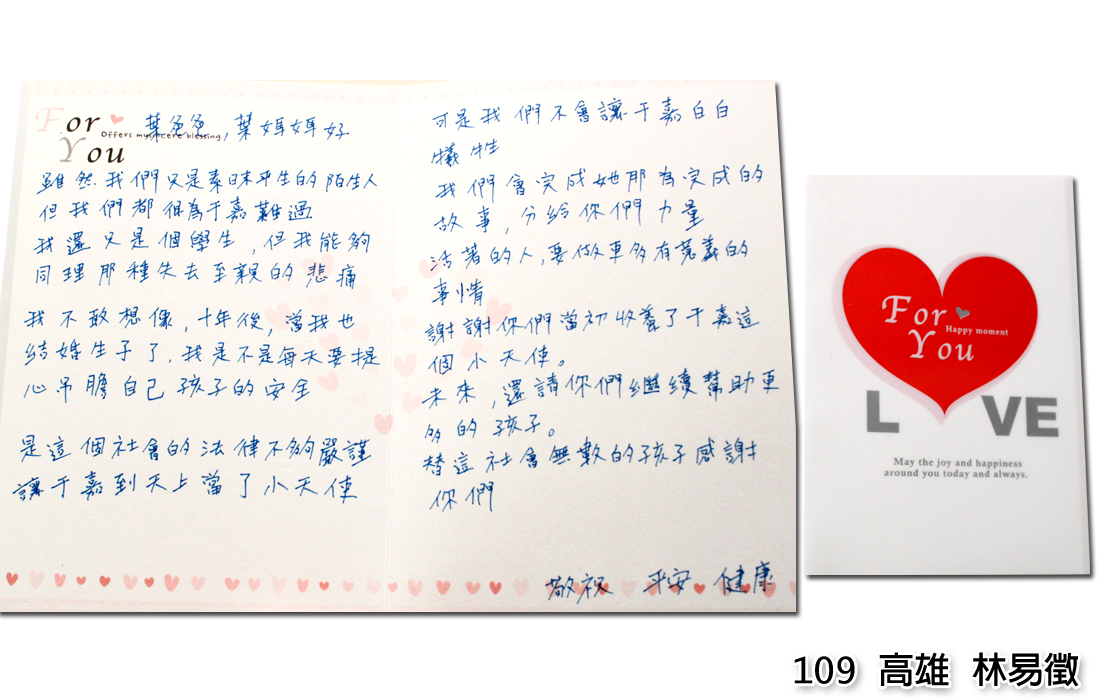 For
Offers my sincere blessing
You
葉爸爸，葉媽媽好
雖然我們只是素昧平生的陌生人
但我們都很為于嘉難過
我還只是個學生，但我能夠
同理那種失去至親的悲痛
我不敢想像，十年後，當我也
結婚生子了，我是不是每天要提
心吊膽自己孩子的安全
是這個社會的法律不夠嚴謹
讓于嘉到天上當了小天使
可是我們不會讓于嘉白白
犧牲
我們會完成她那為完成的
故事，分給你們力量
活著的人，要做更多有意義的
事情
謝謝你們當初收養了于嘉這
個小天使。
未來，還請你們繼續幫助更
多的孩子。
替這社會無數的孩子感謝
你們
敬祝 平安 健康
For
Happy moment
You
L VE
May the joy and happiness
around you today and always.
109 高雄 林易徵